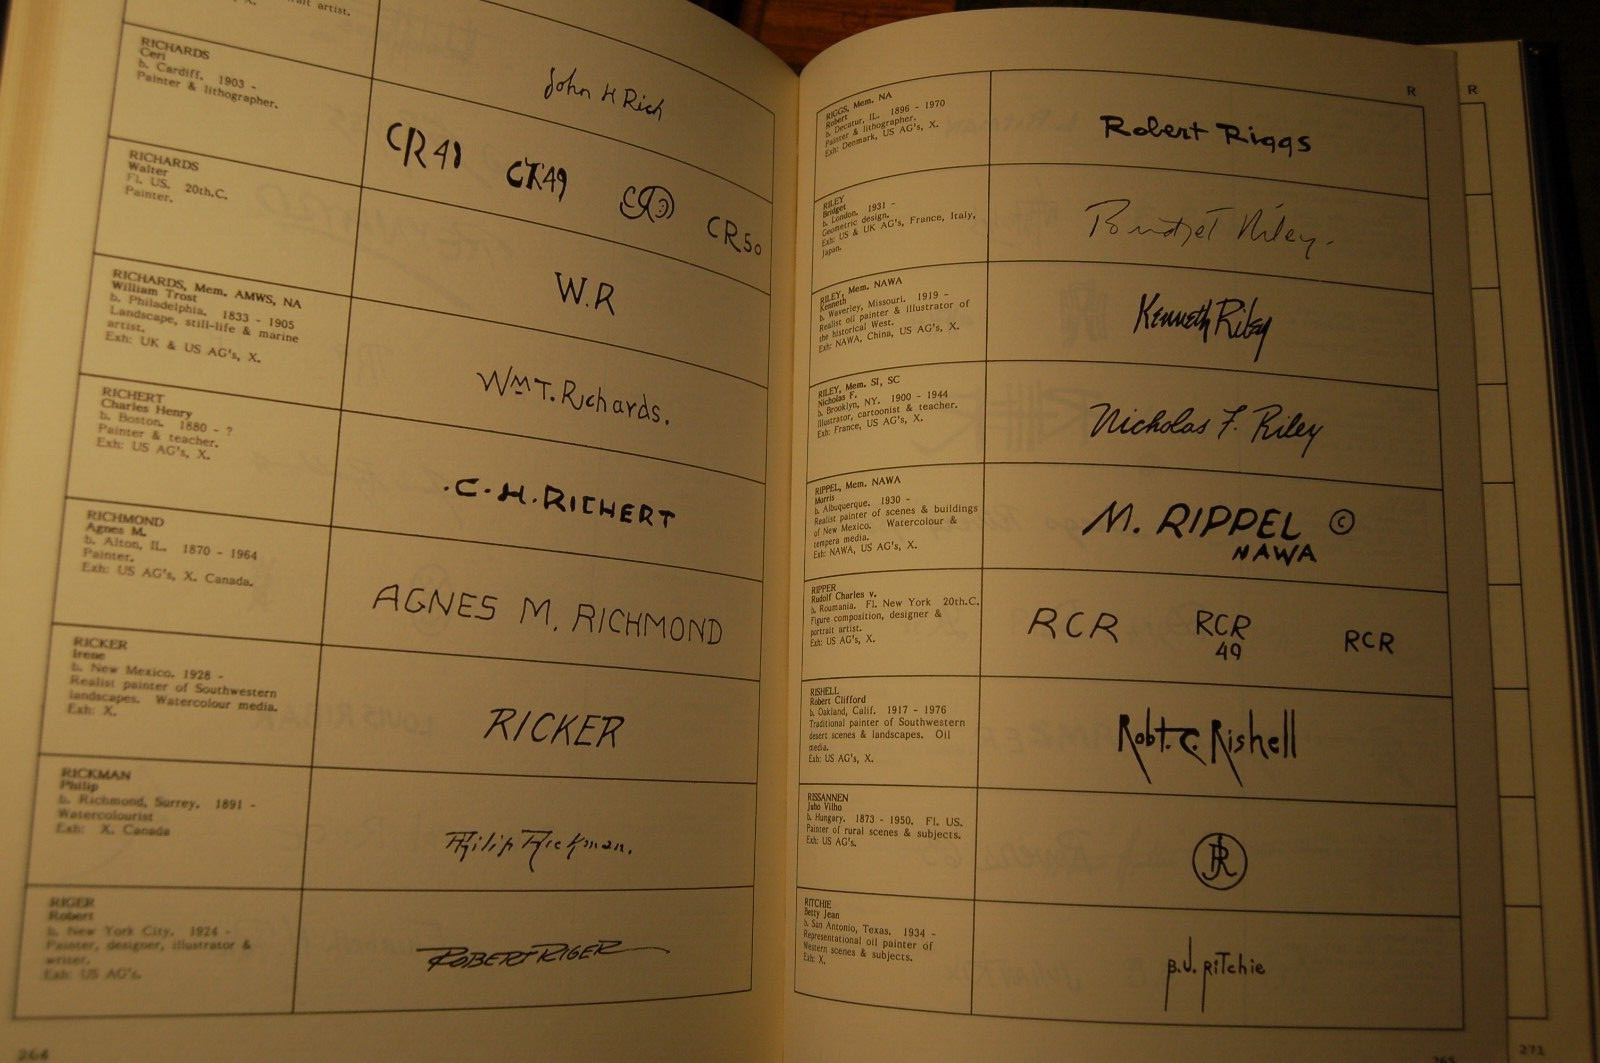 artist.
John H Rich
RICHARDS
Ceri
b. Cardiff. 1903 -
Painter & lithographer.
CR 41 CR49 CR CR50
RICHARDS
Walter
Fl. US. 20th.C.
Painter.
W.R
RICHARDS, Mem. AMWS, NA
William Trost
b. Philadelphia. 1833 - 1905
Landscape, still-life & marine
artist.
Exh: UK & US AG's, X.
WMT. Richards.
RICHERT
Charles Henry
b. Boston. 1880 - ?
Painter & teacher.
Exh: US AG's, X.
.C.H.RICHERT
RICHMOND
Agnes M.
b. Alton, IL. 1870 - 1964
Painter.
Exh: US AG's, X. Canada.
AGNES M. RICHMOND
RICKER
Irene
b. New Mexico. 1928 -
Realist painter of Southwestern
landscapes. Watercolour media.
Exh: X.
RICKER
RICKMAN
Philip
b. Richmond, Surrey. 1891 -
Watercolourist
Exh: X. Canada
Philip Rickman.
RIGER
Robert
b. New York City. 1924 -
Painter, designer, illustrator &
writer.
Exh: US AG's.
ROBERT RIGER
264
R
RIGGS, Mem. NA
Robert
b. Decatur, IL. 1896 - 1970
Painter & lithographer.
Exh: Denmark, US AG's, X.
Robert Riggs
RILEY
Bridget
b. London. 1931 -
Geometric design.
Exh: US & UK AG's, France, Italy,
Japan.
Bridget Riley.
RILEY, Mem. NAWA
Kenneth
b. Waverley, Missouri. 1919 -
Realist oil painter & illustrator of
the historical West.
Exh: NAWA, China, US AG's, X.
Kenneth Riley
RILEY, Mem. SI, SC
Nicholas F.
b. Brooklyn, NY. 1900 - 1944
Illustrator, cartoonist & teacher.
Exh: France, US AG's, X.
Nicholas F. Riley
RIPPEL, Mem. NAWA
Morris
b. Albuquerque. 1930 -
Realist painter of scenes & buildings
of New Mexico. Watercolour &
tempera media.
Exh: NAWA, US AG's, X.
M. RIPPEL ©
NAWA
RIPPER
Rudolf Charles v.
b. Roumania. Fl. New York 20th.C.
Figure composition, designer &
portrait artist.
Exh: US AG's, X.
RCR RCR RCR
49
RISHELL
Robert Clifford
b. Oakland, Calif. 1917 - 1976
Traditional painter of Southwestern
desert scenes & landscapes. Oil
media.
Exh: US AG's, X.
Robt. C. Rishell
RISSANNEN
Juho Vilho
b. Hungary. 1873 - 1950. Fl. US.
Painter of rural scenes & subjects.
Exh: US AG's.
JR
RITCHIE
Betty Jean
b. San Antonio, Texas. 1934 -
Representational oil painter of
Western scenes & subjects.
Exh: X.
B.J. RITchie
265
R
271